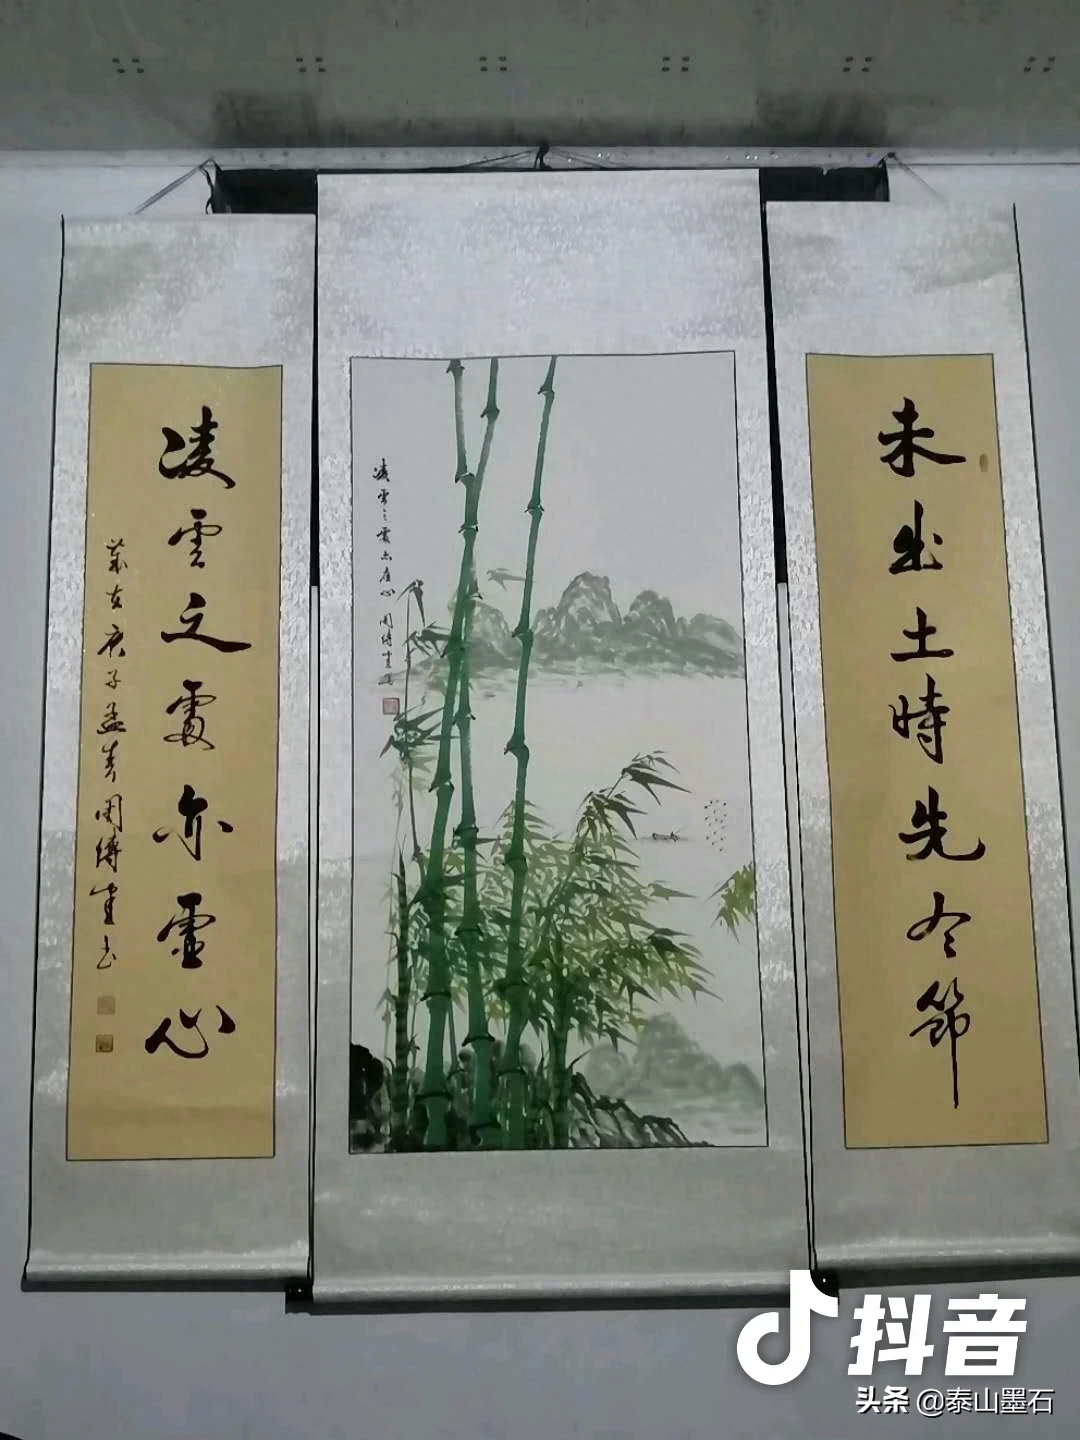 未出土時先有節
凌雲之處亦虛心
歲在庚子孟春周傳堂书
凌雲之處亦虛心 周傳堂寫
抖音
头条 @泰山墨石